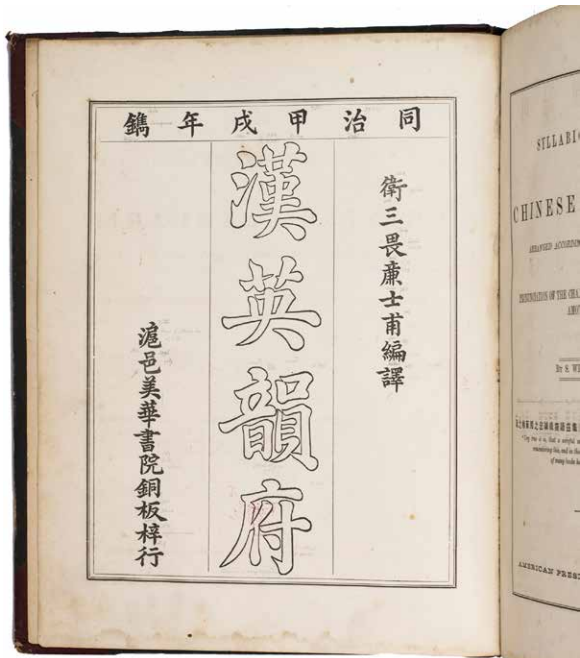 同治甲戌年鐫
衛三畏廉士甫編譯
漢英韻府
滬邑美華書院銅板梓行
SYLLABIC
CHINESE
ARRANGED ACCORDING
PRONUNCIATION OF THE CHA
AMO
BY S. WE
AMERICAN PRES